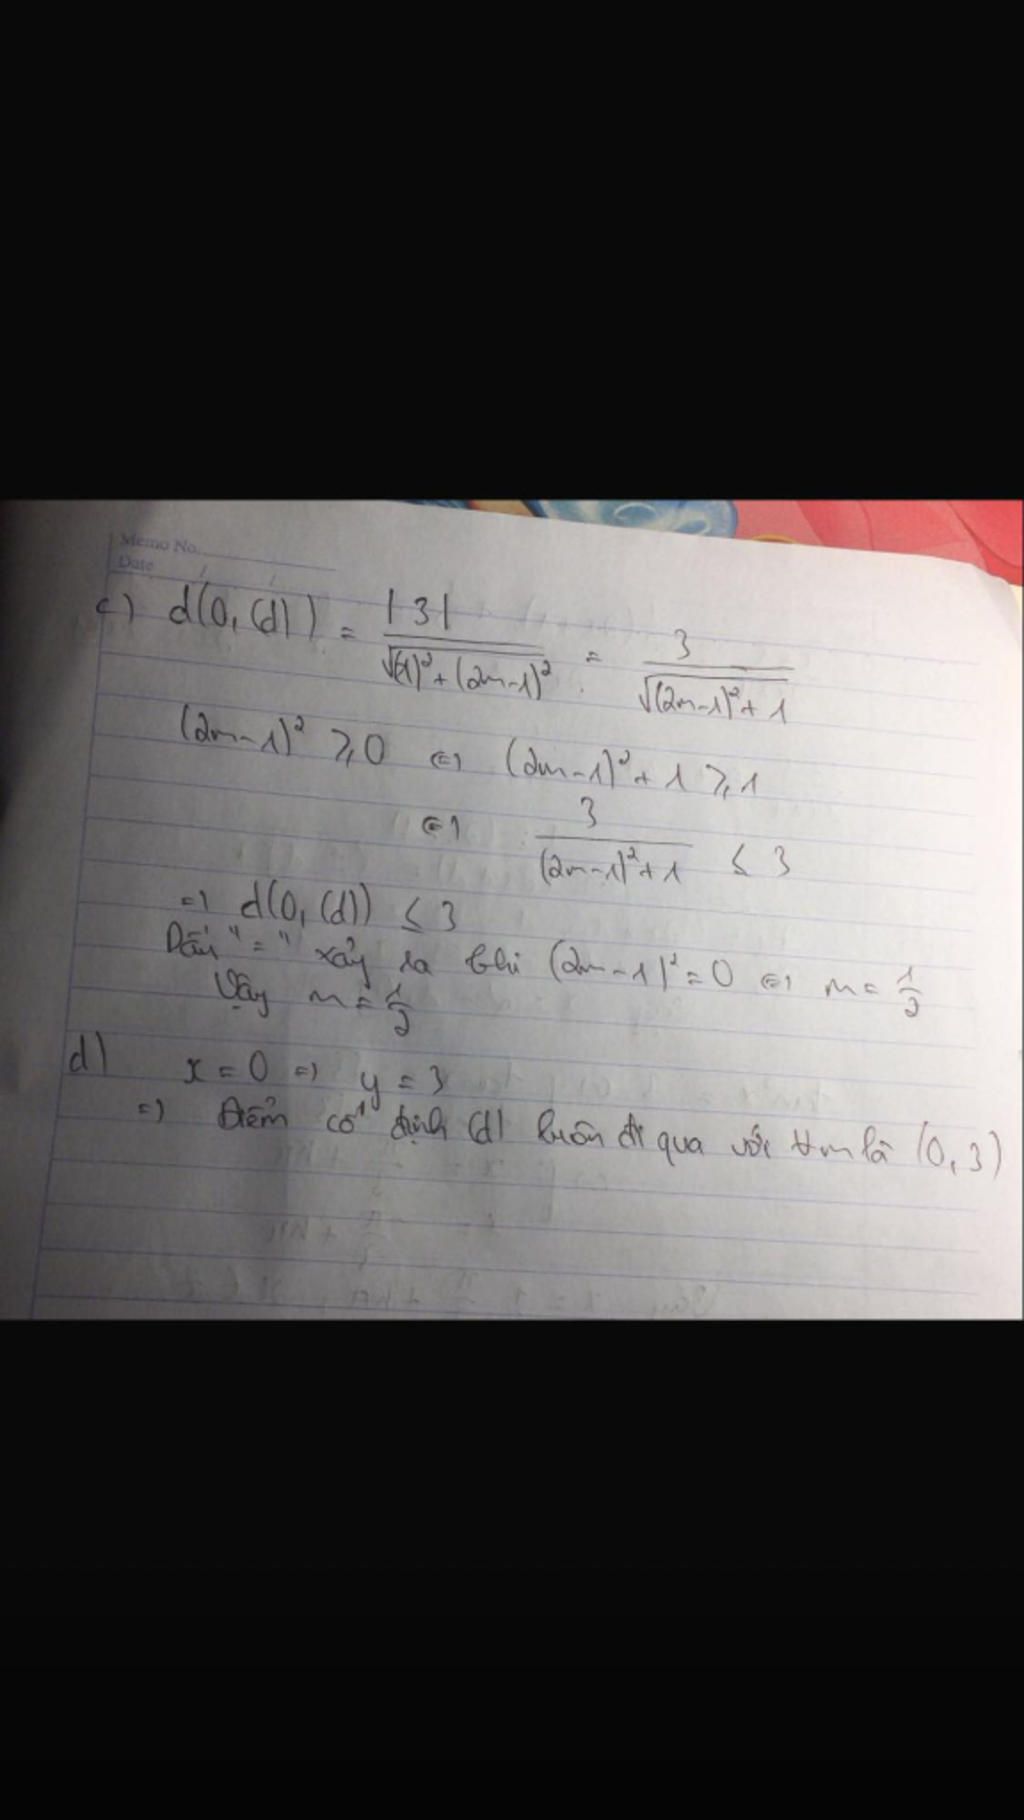 Memo No.
Date / /
c) d(0, (d)) = |3| / √((1)² + (2m-1)²) = 3 / √((2m-1)² + 1)
(2m-1)² ≥ 0 ⇔ (2m-1)² + 1 ≥ 1
⇔ 3 / ((2m-1)² + 1) ≤ 3
=) d(0, (d)) ≤ 3
Dấu "=" xảy ra khi (2m-1)² = 0 ⇔ m = 1/2
Vậy m = 1/2
d) x = 0 =) y = 3
=) Điểm cố định (d) luôn đi qua với ∀m là (0, 3)